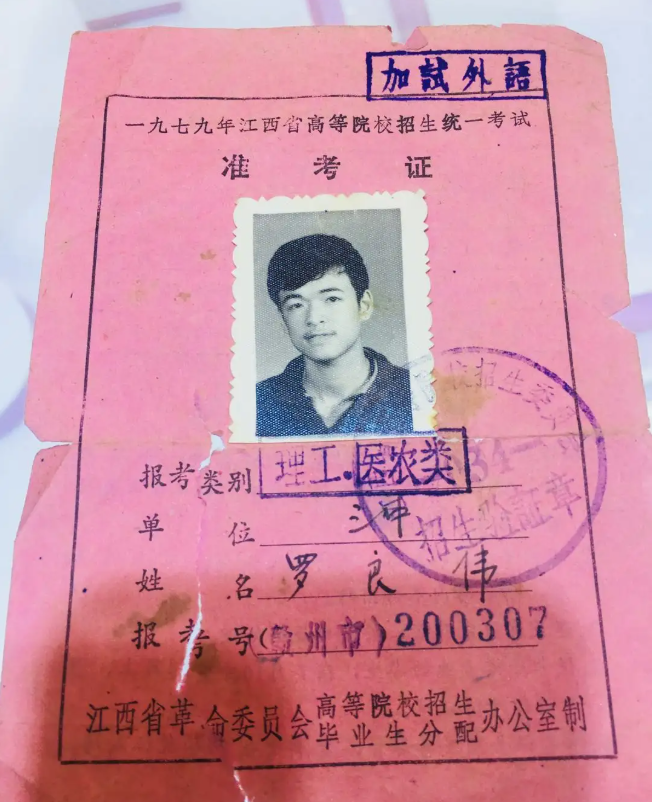 加試外語
一九七九年江西省高等院校招生统一考试
准考证
报考类别 理工.医农类
单位 三中
姓名 罗良伟
报考号(赣州市)200307
校招生委员
34-1
招生验証章
江西省革命委员会高等院校招生毕业生分配办公室制